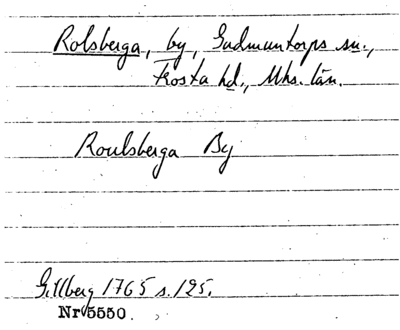 Rolsberga, by, Gudmuntorps sn.,
Frosta hd., Mhs. län.
Roulsberga By
Gillberg 1765 s. 125.
Nr 5550.